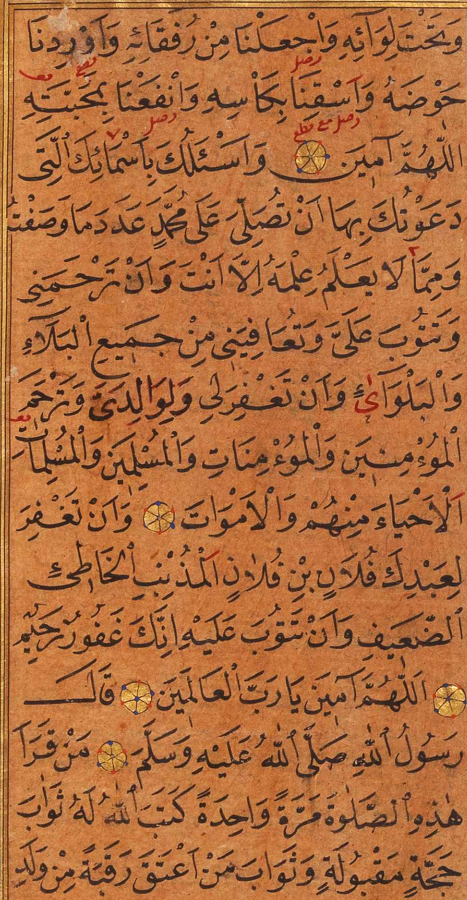 وَتَحْتَ لِوَائِهِ وَاجْعَلْنَا مِنْ رُفَقَائِهِ وَاَوْرِدْنَا
حَوْضَهُ وَاسْقِنَا بِكَاْسِهِ وَانْفَعْنَا بِمَحَبَّتِهِ
اللّٰهُمَّ آمِينَ وَاَسْئَلُكَ بِاَسْمَائِكَ الَّتِى
دَعَوْتُكَ بِهَا اَنْ تُصَلِّىَ عَلَى مُحَمَّدٍ عَدَدَ مَا وَصَفْتُ
وَمِمَّا لَا يَعْلَمُ عِلْمَهُ اِلَّا اَنْتَ وَاَنْ تَرْحَمَنِى
وَتَتُوبَ عَلَىَّ وَتُعَافِيَنِى مِنْ جَمِيعِ الْبَلَآءِ
وَالْبَلْوَآئِ وَاَنْ تَغْفِرَ لِى وَلِوَالِدَىَّ وَتَرْحَمَ
الْمُؤْمِنِينَ وَالْمُؤْمِنَاتِ وَالْمُسْلِمِينَ وَالْمُسْلِمَاتِ
اَلْاَحْيَاءَ مِنْهُمْ وَالْاَمْوَاتَ وَاَنْ تَغْفِرَ
لِعَبْدِكَ فُلَانِ بْنِ فُلَانٍ الْمُذْنِبِ الْخَاطِئِ
الضَّعِيفِ وَاَنْ تَتُوبَ عَلَيْهِ اِنَّكَ غَفُورٌ رَحِيمٌ
اَللّٰهُمَّ آمِينَ يَا رَبَّ الْعَالَمِينَ قَالَ
رَسُولُ اللّٰهِ صَلَّى اللّٰهُ عَلَيْهِ وَسَلَّمَ مَنْ قَرَاَ
هٰذِهِ الصَّلٰوةَ مَرَّةً وَاحِدَةً كَتَبَ اللّٰهُ لَهُ ثَوَابَ
حَجَّةٍ مَقْبُولَةٍ وَثَوَابَ مَنْ اَعْتَقَ رَقَبَةً مِنْ وَلَدِ